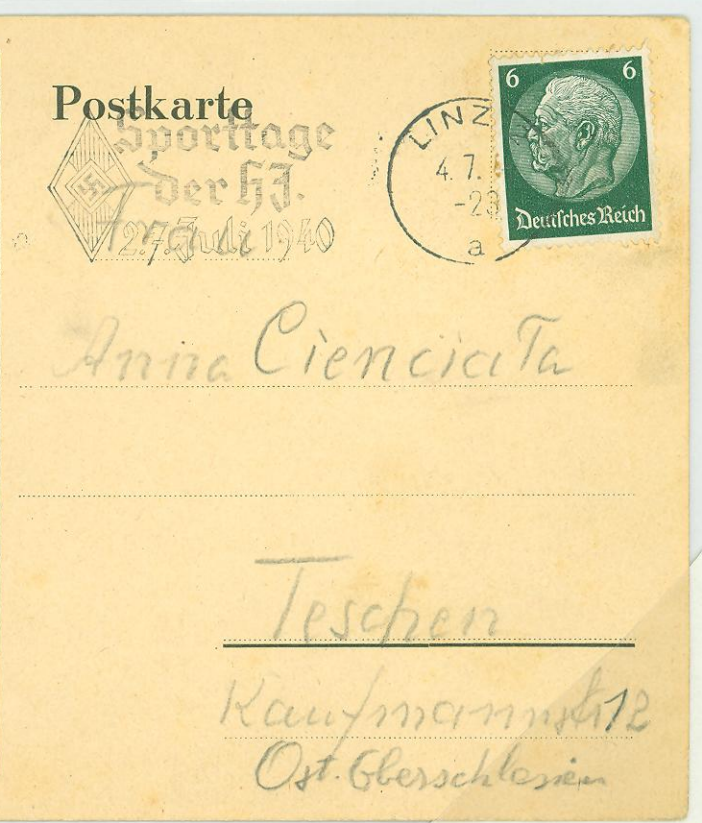 Postkarte
Sporttage
der HJ.
2.-7. Juli 1940
LINZ
4.7.
-23
a
6 6
Deutsches Reich
Anna Cienciala
Teschen
Kaufmannstr 12
Ost. Oberschlesien